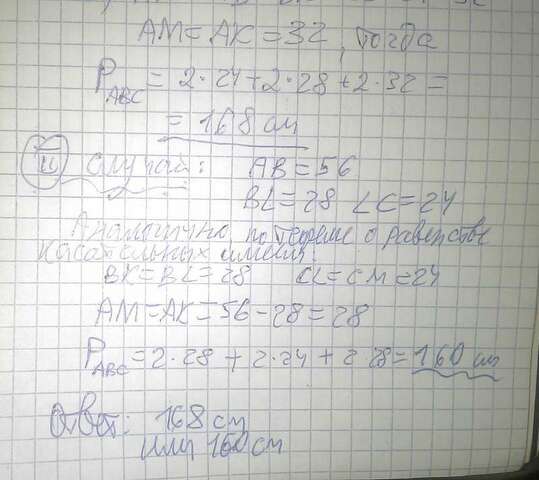 AM = AK = 32, тогда
P ABC = 2·24+2·28+2·32 =
= 168 см
II случай: AB = 56
BL = 28 LC = 24
Аналогично по теореме о равенстве
касательных имеем:
BK = BL = 28 CL = CM = 24
AM = AK = 56 - 28 = 28
P ABC = 2·28 + 2·24 + 2·28 = 160 см
Ответ: 168 см
или 160 см